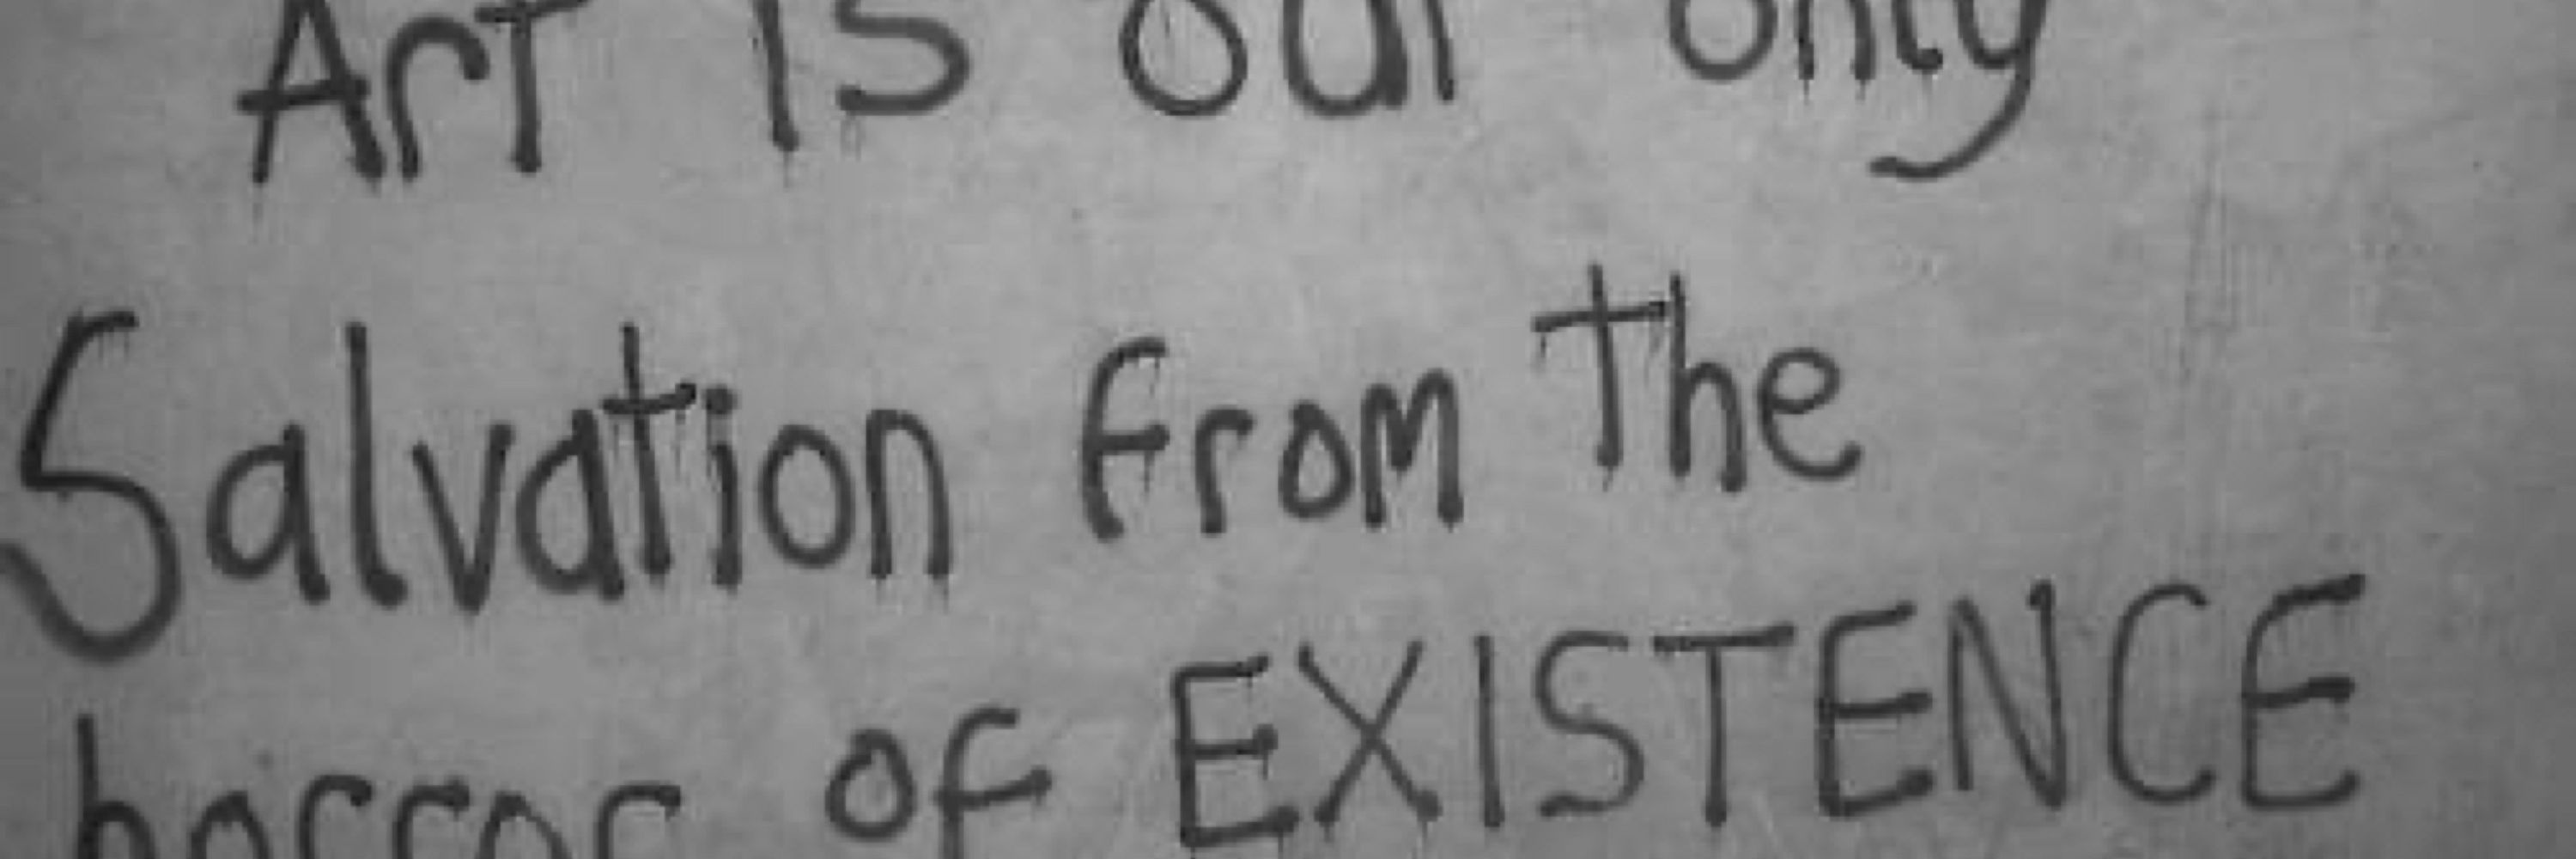 Art is our only
Salvation from the
horror of EXISTENCE